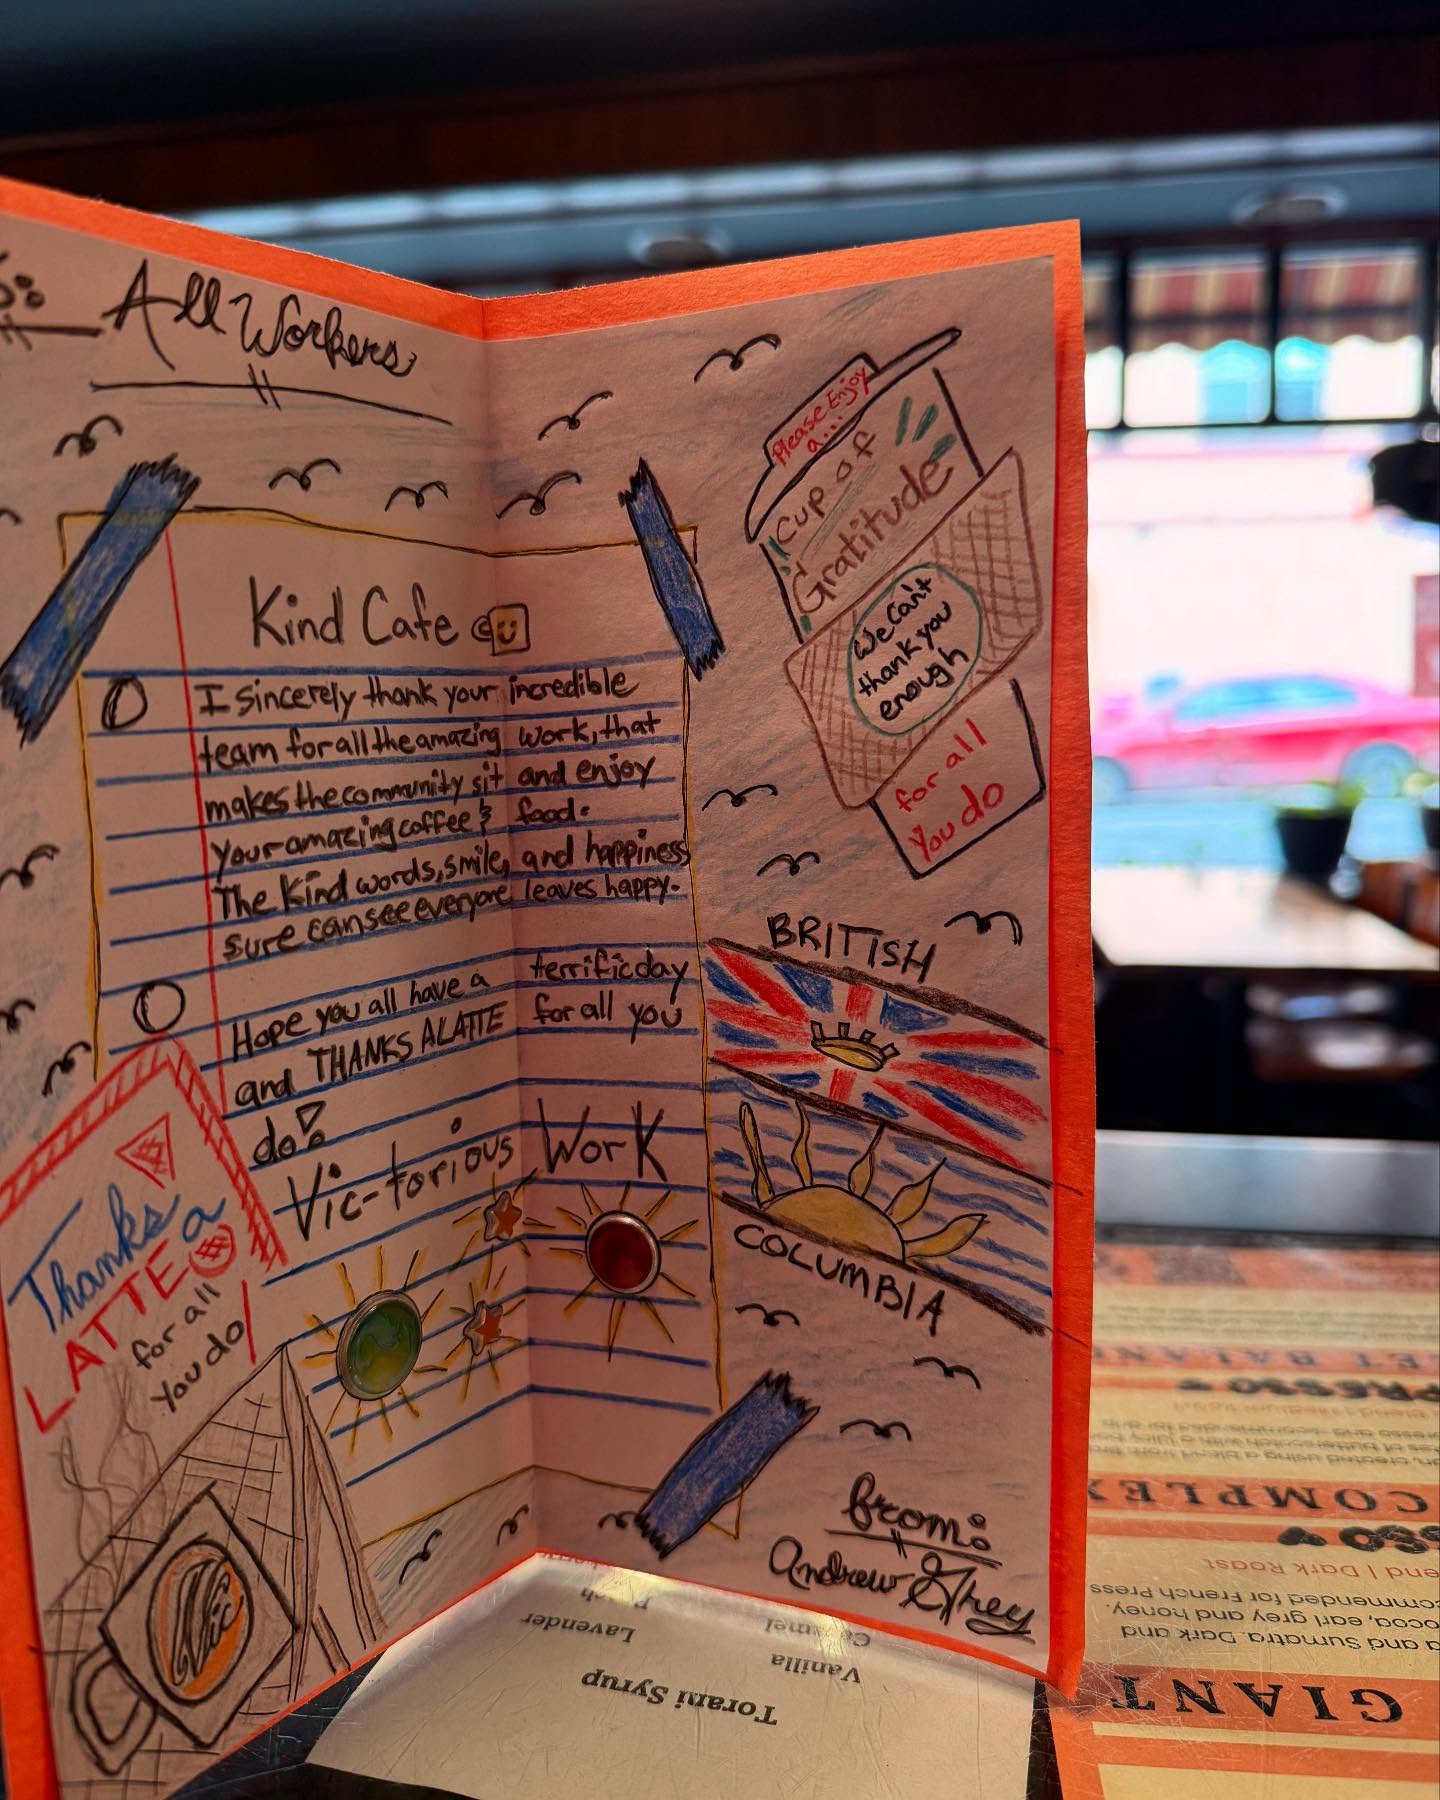 To:
All Workers
Kind Cafe
I sincerely thank your incredible
team for all the amazing work, that
makes the community sit and enjoy
your amazing coffee & food.
The Kind words, smile, and happiness
sure can see everyone leaves happy.
Hope you all have a terrific day
and THANKS A LATTE for all you
do!
Vic-torious Work
Please Enjoy
a...
Cup of
Gratitude
We Can't
thank you
enough
for all
You do
BRITISH
COLUMBIA
Thanks a
LATTE
for all
You do!
Vic
from:
Andrew Grey
Lavender
Caramel
Vanilla
Torani Syrup
COMPLEX
end | Dark Roast
commended for French Press
cocoa, earl grey and honey.
a and Sumatra. Dark and
GIANT